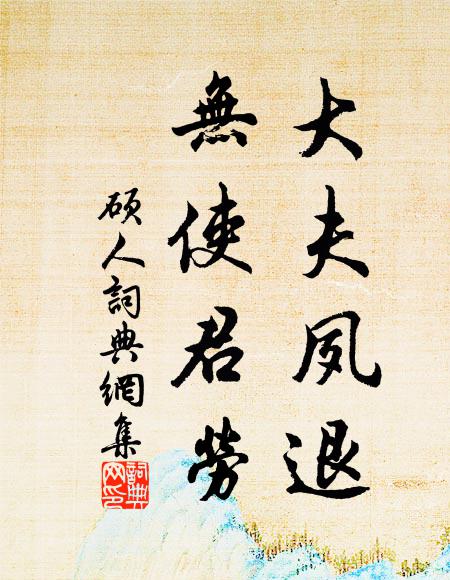 大夫夙退
無使君勞
碩人詞典網集
詞典
网印